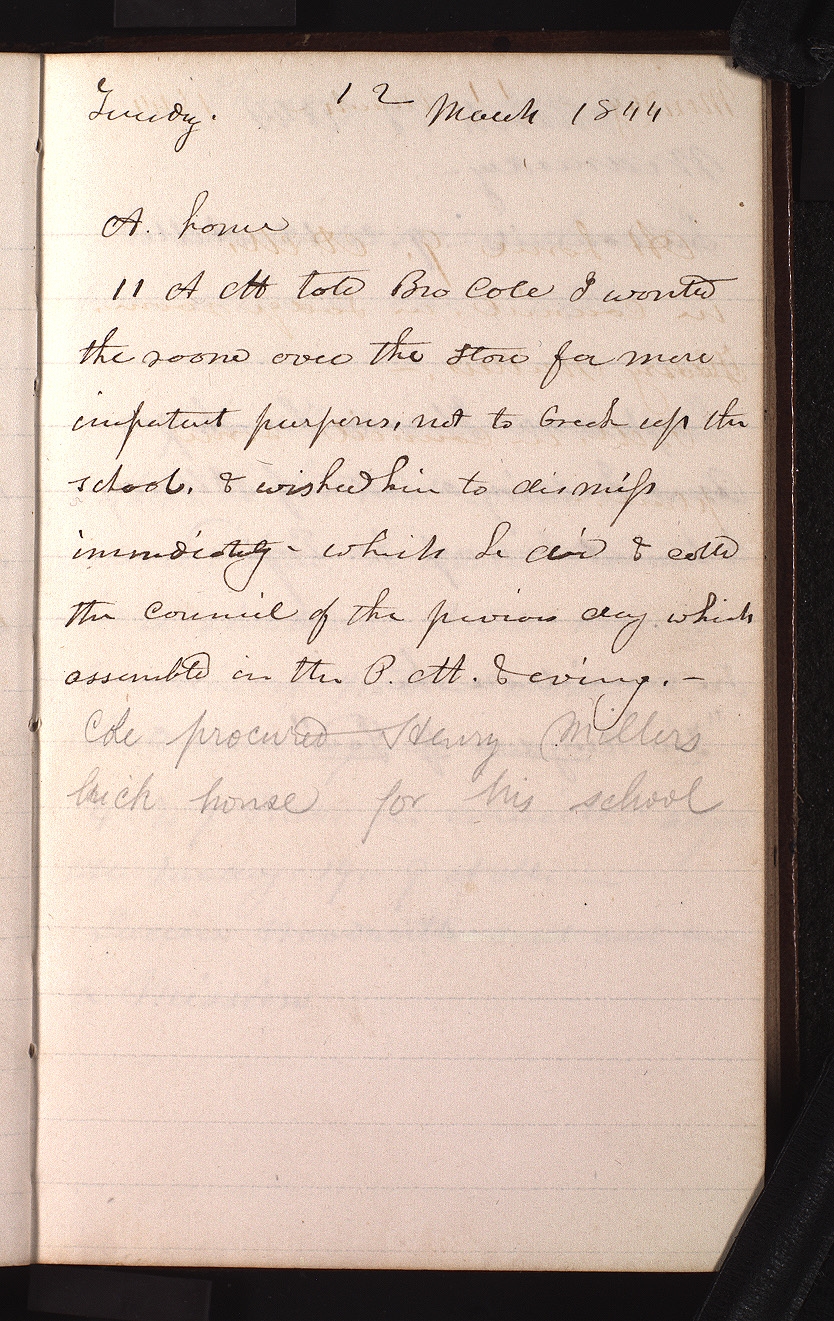 Tuesday. 12 March 1844
At. home
11 A M told Bro Cole I wanted
the room over the store for more
important purposes, not to break up the
school. & wished him to dismiss
immediately - which he did & called
the council of the previous day which
assembled in the P. M. & evening. -
Cole procured Henry Millers"
brick house for his school